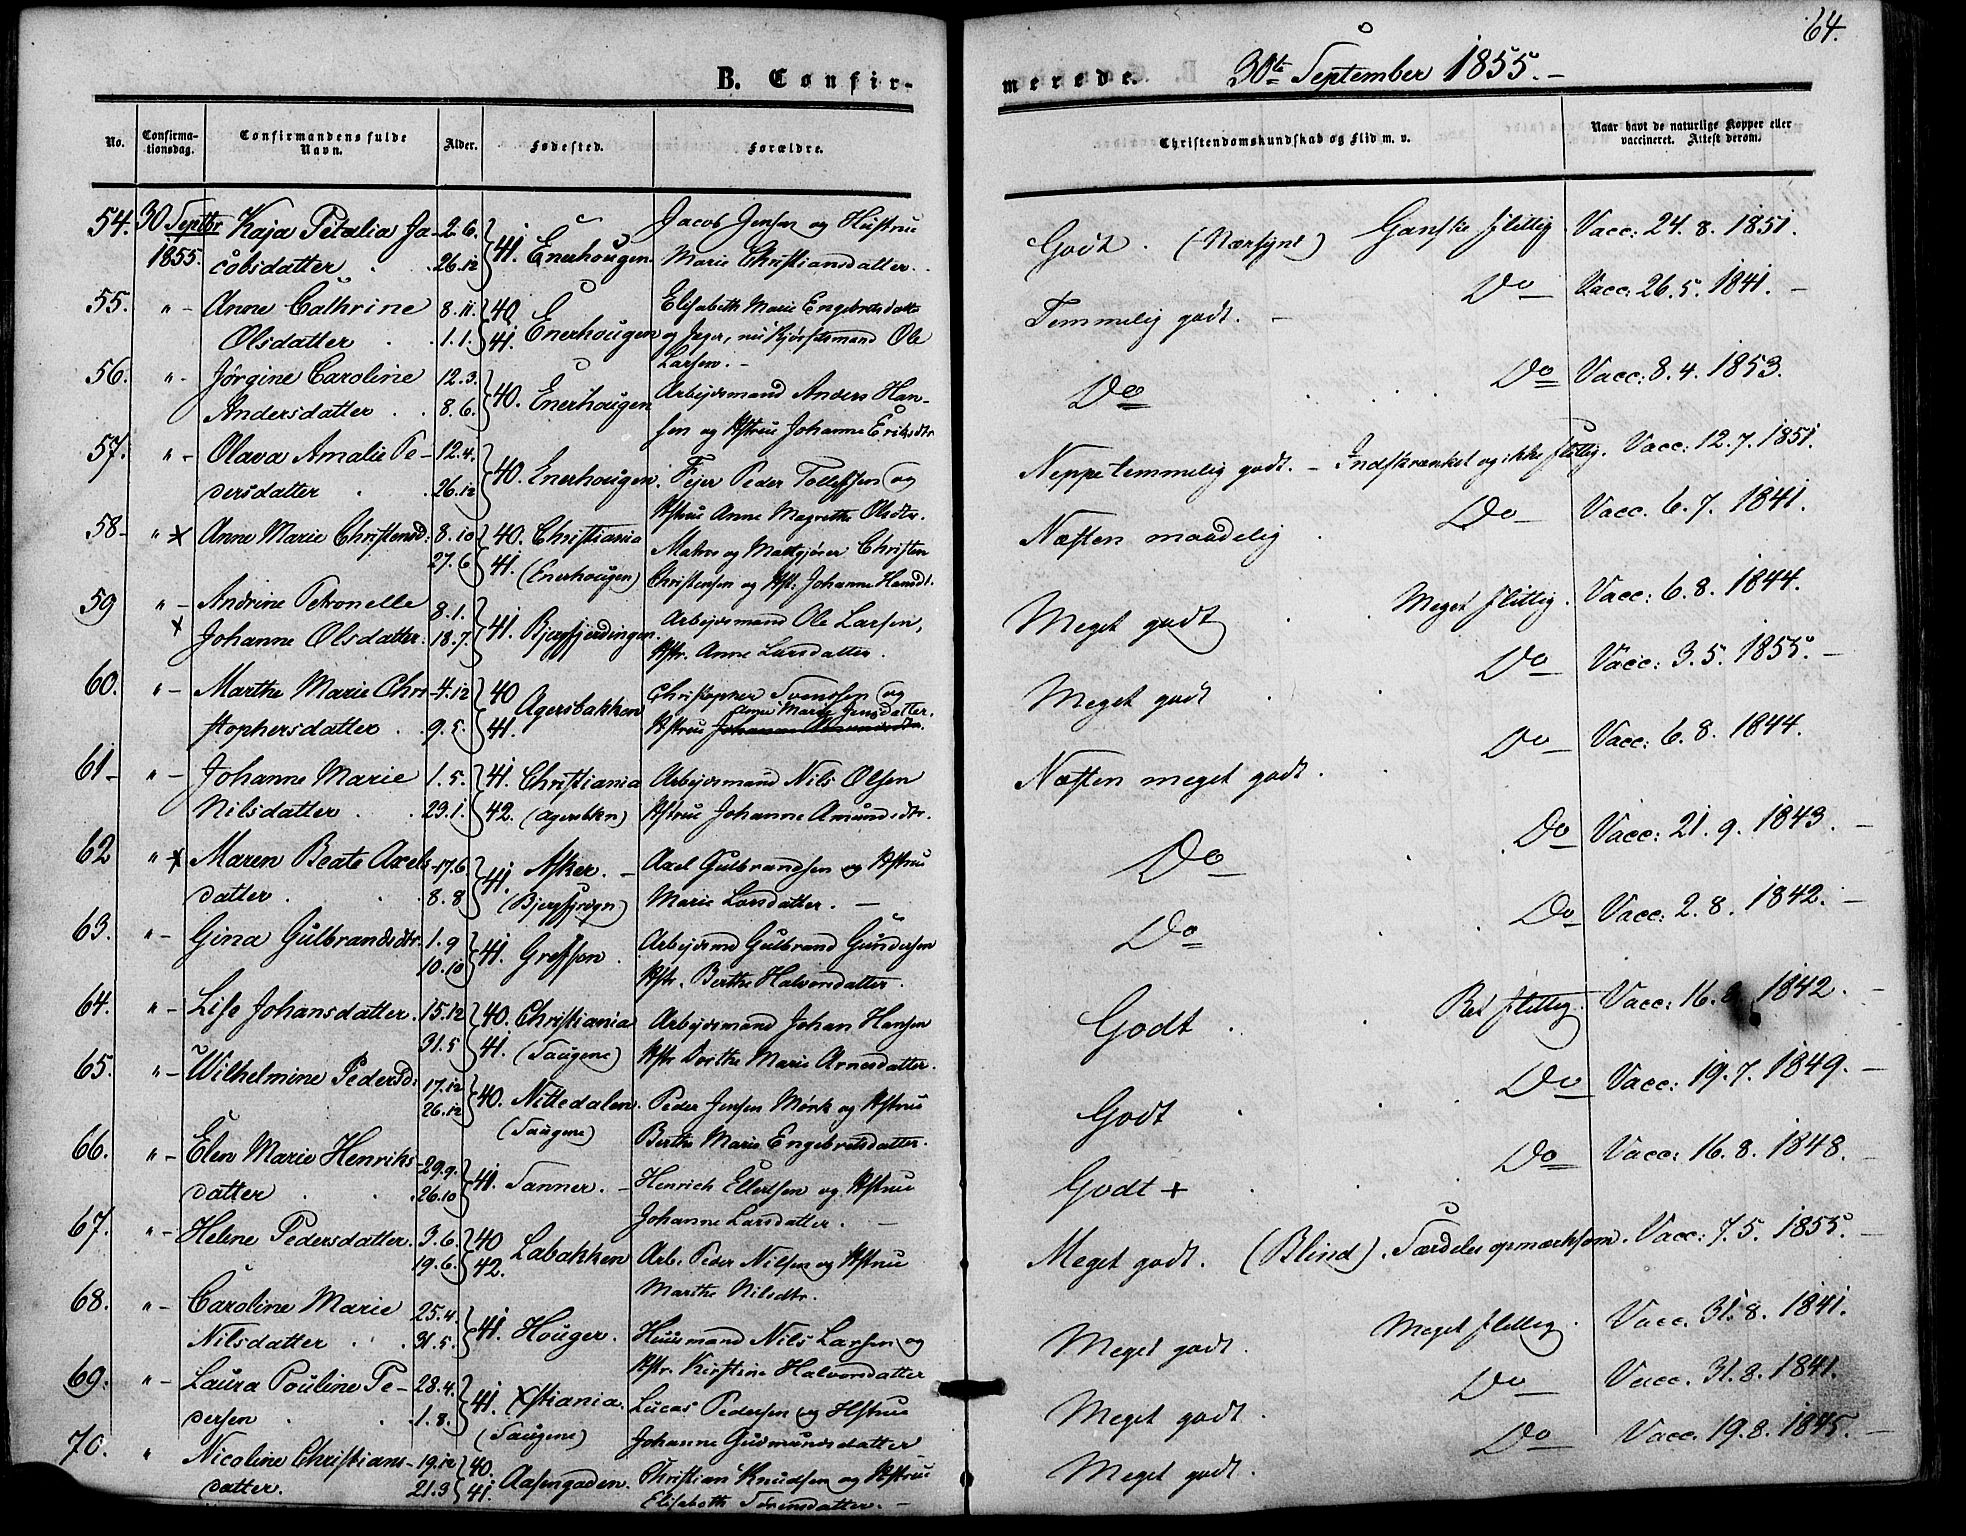 64.
B. Confirmerede. 30te September 1855.-
No. Confirma-tionsdag. Confirmandens fulde Navn. Alder. Fødested. Forældre. Christendomskundskab og Flid m. v. Naar havt de naturlige Kopper eller vaccineret. Attest derom.
54. 30 Septbr Kaja Petalia Ja- 2.6. } 41. Enerhougen. Jacob Jensen og Hustrue Godt. (Nærsynt) Ganske flittig Vacc: 24.8.1851.
1855. cobsdatter . . 26.12 Marie Christiansdatter.
55. "- Anne Cathrine 8.11. } 40. Enerhougen Elisabeth Marie Engebretsdatter Temmelig godt. - Do Vacc: 26.5.1841. -
Olsdatter . . 1.1. 41. og Jæger, nu Ole
Larsen. -
56. "- Jørgine Caroline 12.3. } 40. Enerhougen Arbejdsmand Anders Han- Do . . . Do Vacc: 8.4.1853.
Andersdatter . . 8.6. sen og Hstrue Johanne Eriksdtr
57. "- Olava Amalie Pe- 12.4. } 40. Enerhougen. Fejer Peder Tollefsen og Neppe temmelig godt. - Indskrænket og ikke flittig. Vacc: 12.7.1851.
dersdatter . . 26.12 Hstrue Anne Magrethe Olsdtr.
58- " x Anne Marie Christensd: 8.10 } 40. Christiania og Christen Næsten maadelig . Do Vacc. 6.7.1841.
27.6 41. (Enerhougen) Christensen og Hst: Johanne Hansdt.
59 "- Andrine Petronelle 8.1. } 41. Bjergfjerdingen. Arbejdsmand Ole Larsen, Meget godt . . Meget flittig. Vacc: 6.8.1844.
x Johanne Olsdatter. 18.7. Hstr. Anne Larsdatter.
60. "- Marthe Marie Chri- 4.12 } 40 Agersbakken Christopher Svensen og Meget godt . Do Vacc: 3.5.1855. -
stophersdatter . . 9.5. 41. Hstrue Anne Marie Jensdatter.
61- "- Johanne Marie 1.5. } 41. Christiania Arbejdsmand Nils Olsen Næsten meget godt. . Do Vacc: 6.8.1844.
Nilsdatter . . 29.1. 42. (Agersbkn) Hstrue Johanne Amundsdtr.
62 " x Maren Beate Axels- 17.6. } 41. Asker. - Axel Gulbrandsen og Hstrue Do . . Do Vacc: 21.9.1843. -
datter . . 8.8 (Bjergfjrdgn) Marie Larsdatter. -
63. "- Gina Gulbrandsdtr. 1.9 } 41. Grefson . Arbejdsmd Gulbrand Gundersen Do . Do Vacc: 2.8.1842. -
10.10 Hstr. Berthe Halvorsdatter.
64. "- Lise Johansdatter. 15.12 } 40. Christiania Arbejdsmand Johan Hansen Godt . . Ret flittig. Vacc: 16. 1842. -
31.5 41. (Saugene) Hstr Dorthe Marie Arnesdatter.
65. "- Wilhelmine Pedersd: 17.12 } 40. Nittedalen. Peder Jensen Mørk og Hstrue Godt . . . Do Vacc: 19.7.1849. -
26.12 (Saugene) Berthe Marie Engebretsdatter.
66. "- Elen Marie Henriks- 29.9. } 41. Tanner. - Henrich Ellertsen og Hstrue Godt + . . . Do Vacc: 16.8.1848. -
datter . . 26.10 Johanne Larsdatter. -
67. "- Helene Pedersdatter. 3.6. } 40 Labakken Arb. Peder Nilsen og Hstrue Meget godt. (Blind). Særdeles opmærksom. Vacc: 7.5.1855. -
19.6. 42. Marthe Nilsdtr.
68. "- Caroline Marie 25.4. } 41. Houger. Huusmand Nils Larsen og Meget godt. Meget flittig. Vacc. 31.8.1841.
Nilsdatter . . 31.5. Hstr. Kirstine Halvorsdatter
69. "- Laura Pouline Pe- 28.4. } 41. Xstiania. Lucas Pedersen og Hstrue Meget godt. Do Vacc. 31.8.1841.
dersen . . 1.8. (Saugene) Johanne Gudmundsdatter
70. " Nicoline Christians- 19.12 } 40. Aasengaden. Christian Knudsen og Hstrue Meget godt. Do Vacc. 19.8.1845. -
datter. 21.9 41. Elisabeth Sørensdatter. -